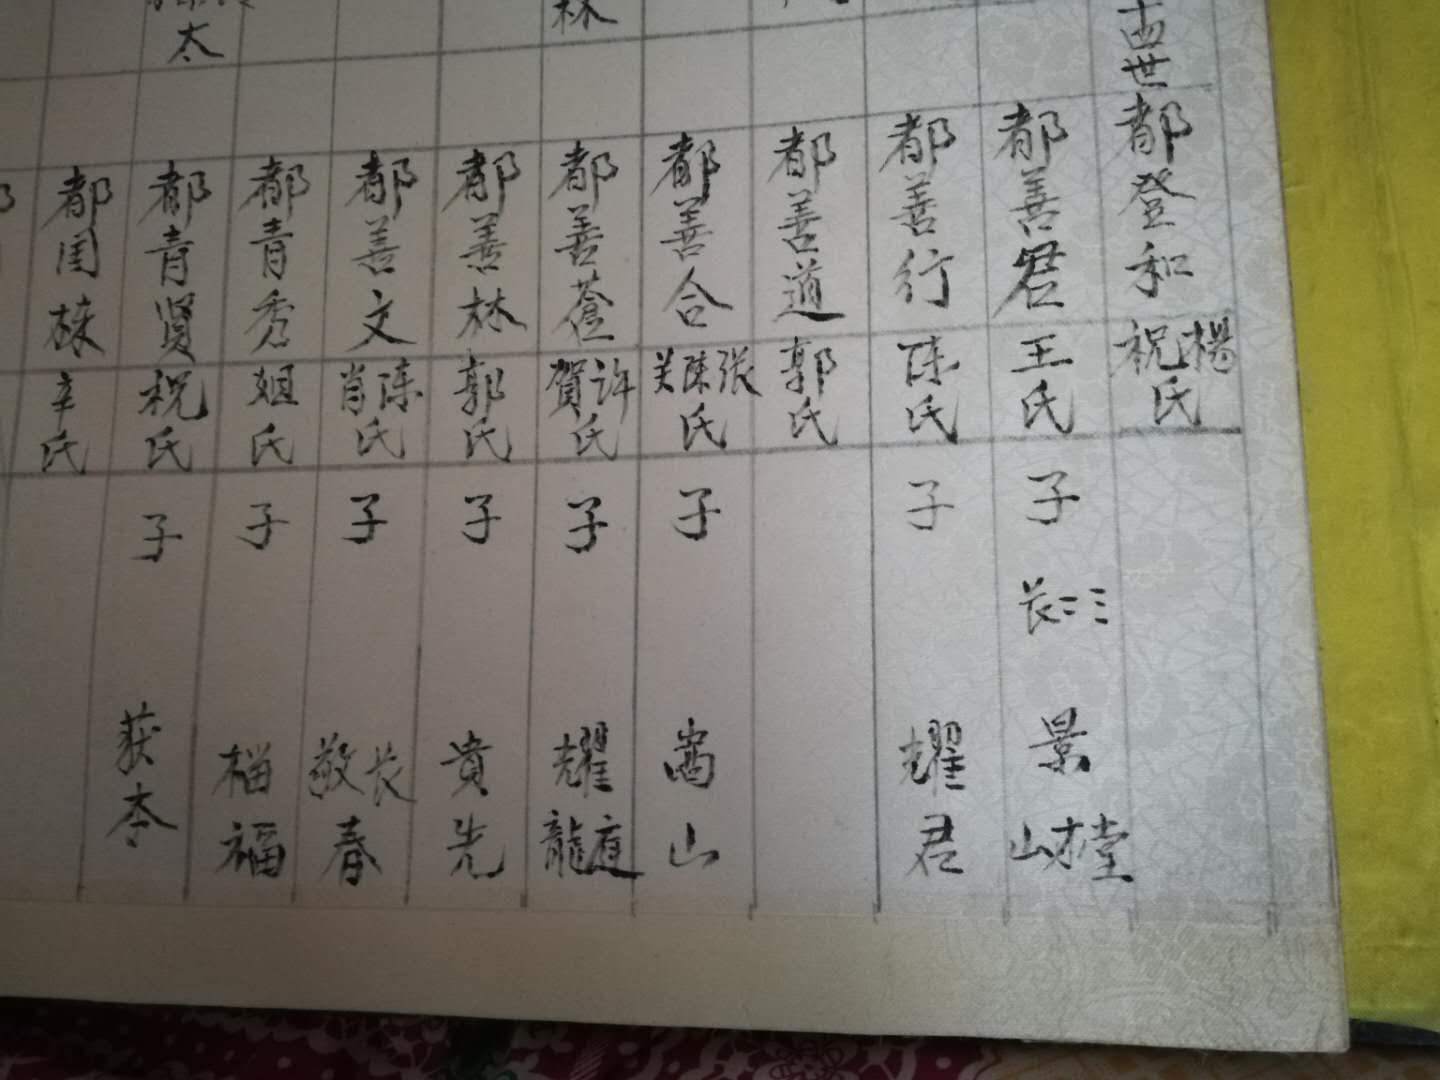 十四世
都登和 祝楊氏
都善君 王氏 子 長二三 景山才堂
都善行 陈氏 子 耀君
都善道 郭氏
都善合 关陈张氏 子 嵩山
都善蒼 賀许氏 子 耀龍庭
都善林 郭氏 子 貴先
都善文 肖陈氏 子 敬長春
都青秀 姐氏 子 福
都青贤 祝氏 子 荻苓
都国棟 辛氏
林
太